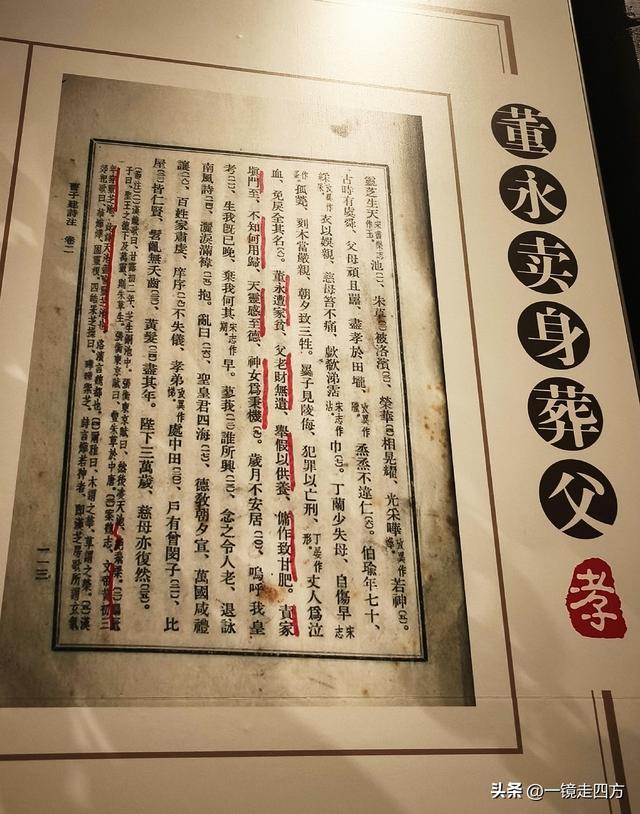 董永卖身葬父
孝
靈芝生天宋書樂志作玉。池㈠、朱草㈡被洛濱㈢、榮華㈣相晃耀、光采曄攷異作若神㈤。
古時有虞舜、父母頑且嚚、盡孝於田壠、攷異作烝烝不違仁㈥。伯瑜年七十、
綵攷異作采。衣以娛親、慈母笞不痛、歔欷涕霑宋志作沾。巾㈦。丁蘭少失母、自傷早宋志作
孤煢、刻木當嚴親、朝夕致三牲。暴子見陵侮、犯罪以亡刑、丁晏作形丈人爲泣
血、免戾全其名㈧。董永遭家貧、父老財無遺、舉假以供養、傭作致甘肥。責家
塡門至、不知何用歸、天靈感至德、神女爲秉機㈨。歲月不安居㈩、嗚呼我皇
考、生我旣已晚、棄我何其宋志作期。早。蓼莪誰所興、念之令人老、退詠
南風詩、灑淚滿褘抱。亂曰、聖皇君四海、德敎朝夕宣、萬國咸禮
讓、百姓家肅虔、庠序不失儀、孝弟攷異作悌。處中田、戶有曾閔子、比
屋皆仁賢、髫齓無天齒、黃髮盡其年。陛下三萬歲、慈母亦復然。
曹子建詩注 卷二
一一三
头条 @一镜走四方